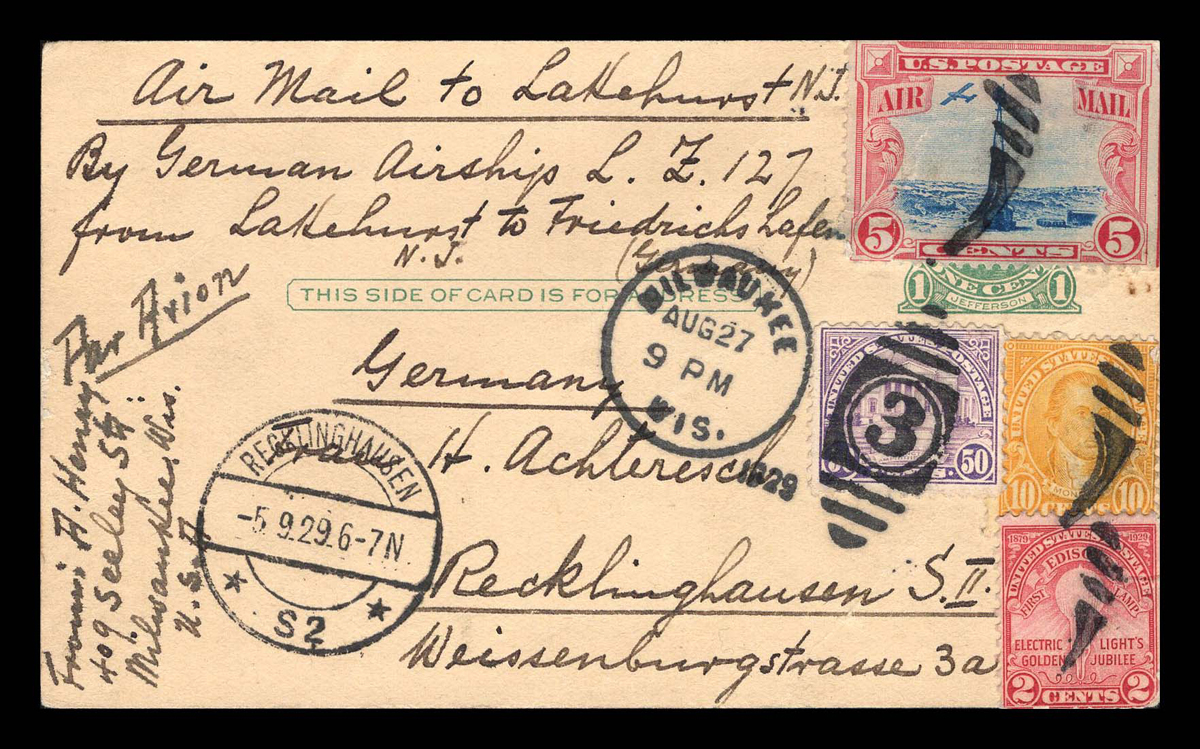 Air Mail to Lakehurst N.J.
By German Airship L. Z. 127
from Lakehurst to Friedrichshafen
N.J. (Germany)
U.S. POSTAGE
AIR MAIL
5 CENTS 5
THIS SIDE OF CARD IS FOR ADDRESS
1 ONE CENT 1
JEFFERSON
Par Avion
From: A. Henny
409 Seeley St.
Milwaukee Wis.
U.S.A.
MILWAUKEE
AUG 27
9 PM
WIS.
1929
UNITED STATES POSTAGE
3
50 CENTS 50
UNITED STATES POSTAGE
MONROE
10 CENTS 10
Germany
H. Achteresch
Recklinghausen S.II.
Weissenburgstrasse 3a
RECKLINGHAUSEN
-5.9.29.6-7N
S2
1879 1929
UNITED STATES POSTAGE
EDISON'S
FIRST LAMP
ELECTRIC LIGHT'S
GOLDEN JUBILEE
2 CENTS 2